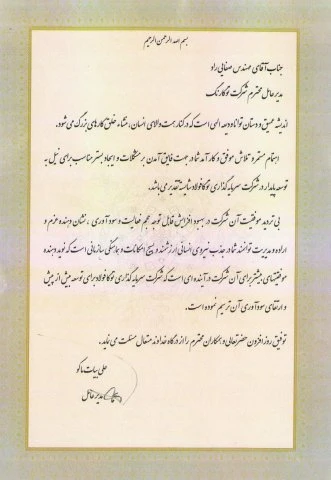 بسم الله الرحمن الرحیم
جناب آقای مهندس صفایی راد
مدیر عامل محترم شرکت توکارنگ
اندیشه عمیق و دستان توانا ودیعه الهی است که در کنار همت والای انسان، منشاء خلق کارهای بزرگ می شود.
اهتمام مستمر و تلاش موفق و کارآمد شما در جهت فایق آمدن بر مشکلات و ایجاد بستر مناسب برای نیل به
توسعه پایدار در شرکت سرمایه گذاری توکا فولاد شایسته تقدیر می باشد.
بی تردید موفقیت آن شرکت در بهبود و افزایش قابل توجه حجم فعالیت و سودآوری ، نشان دهنده عزم و
اراده و مدیریت توانمند شما در جذب نیروی انسانی ارزشمند و بسیج امکانات و هماهنگی سازمانی است که نوید دهنده
موفقیتهای بیشتر برای آن شرکت در آینده ای است که شرکت سرمایه گذاری توکا فولاد برای توسعه بیش از پیش
و ارتقای سودآوری آن ترسیم نموده است.
توفیق روز افزون حضرتعالی و همکاران محترم را از درگاه خداوند متعال مسئلت می نماید.
علی بیات ماکو
مدیر عامل